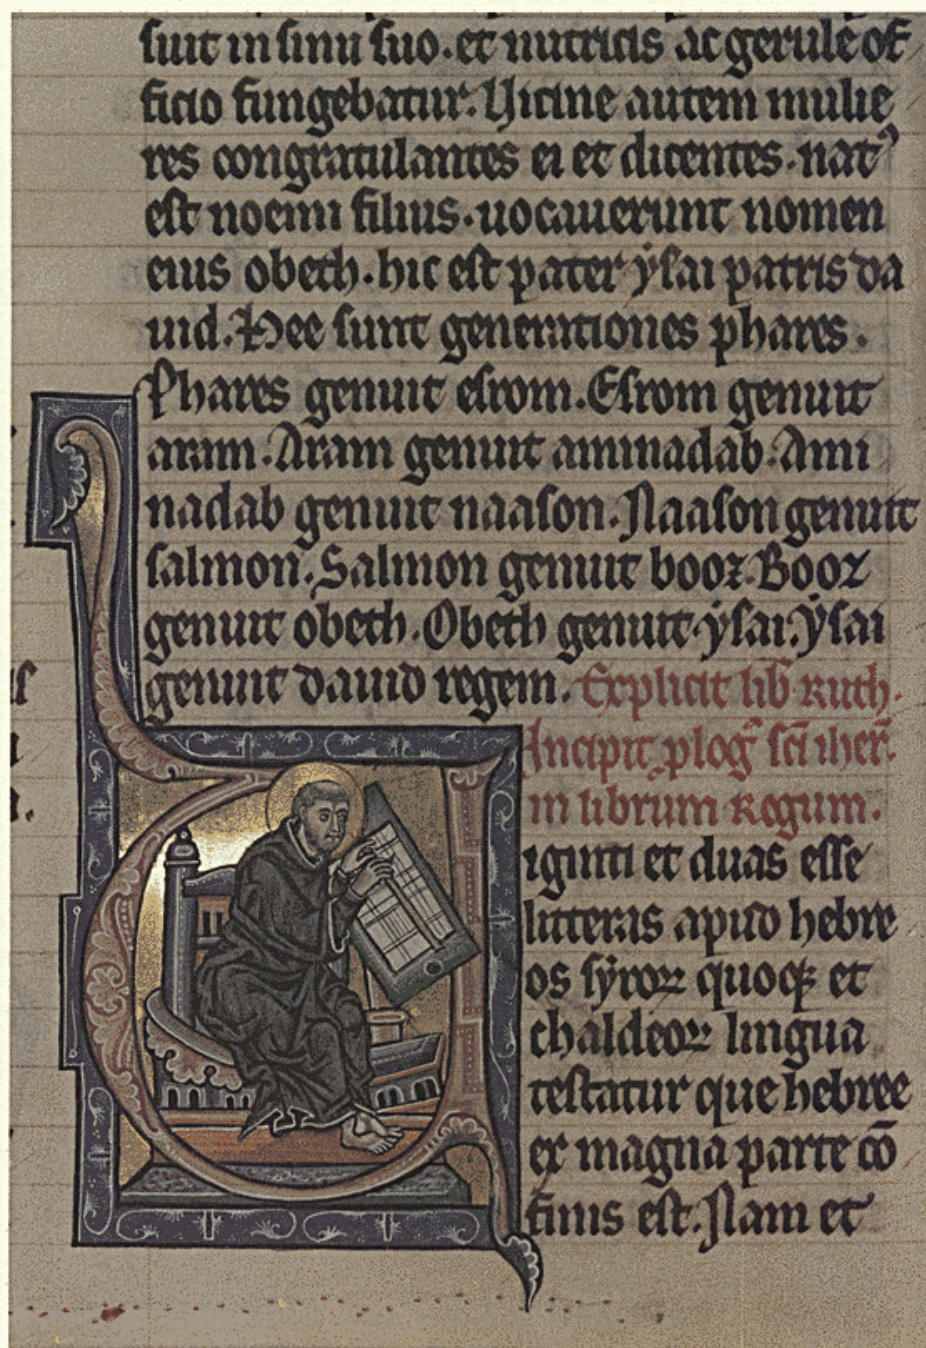 suit in sinu suo. et nutricis ac gerule of
ficio fungebatur. Vicine autem mulie
res congratulantes ei et dicentes. natꝰ
est noemi filius. uocauerunt nomen
eius obeth. hic est pater ysai patris da
uid. Hee sunt generationes phares.
Phares genuit esrom. Esrom genuit
aram. Aram genuit aminadab. Ami
nadab genuit naason. Naason genuit
salmon. Salmon genuit booz. Booz
genuit obeth. Obeth genuit ysai. ysai
genuit dauid regem. Explicit lib ruth.
Incipit plog sci iher.
in librum Regum.
Uiginti et duas esse
litteras apud hebre
os syroꝝ quoqꝫ et
chaldeoꝝ lingua
testatur que hebree
ex magna parte cō
finis est. Nam et